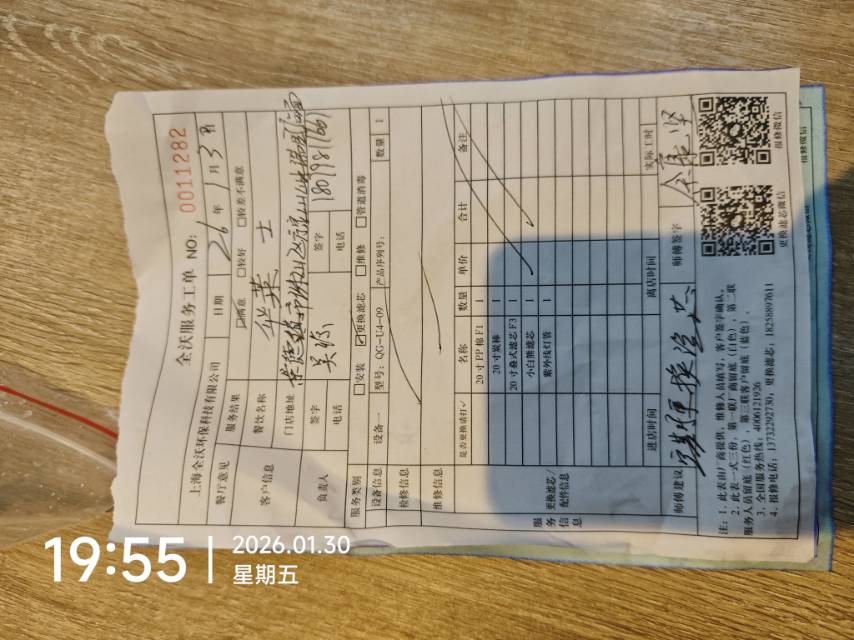 全沃服务工单 NO: 0011282
上海全沃环保科技有限公司 日期 26 年 1 月 3
餐厅意见 服务结果 满意 较好 较差不满意
客户信息 餐饮名称 华莱士
门店地址 景德镇市
负责人 签字 签字
电话 电话
服务类别 安装 更换滤芯 维修 管道消毒
设备信息 设备一 型号: QG-U4-09 产品序列号: 数量 1
检修信息
维修信息
服务信息 更换滤芯/配件信息 是否更换请打✓ 名称 数量 单价 合计 备注
20寸PP棉F1 1
20寸炭棒 1
20寸叠式滤芯F3 1
小白熊滤芯 1
紫外线灯管 1
进店时间 离店时间 实际工时
师傅建议 定期更换滤芯 师傅签字
注: 1、此表由厂商提供, 维修人员填写, 客户签字确认。
2、此表一式三份, 第一联厂商留底(白色), 第二联
服务人员留底(红色), 第三联客户留底(蓝色)。
3、全国服务热线: 4006121926
4、报修电话: 13732292730, 更换滤芯: 18258897611
更换滤芯微信 报修微信
报修微信
19:55 2026.01.30
星期五